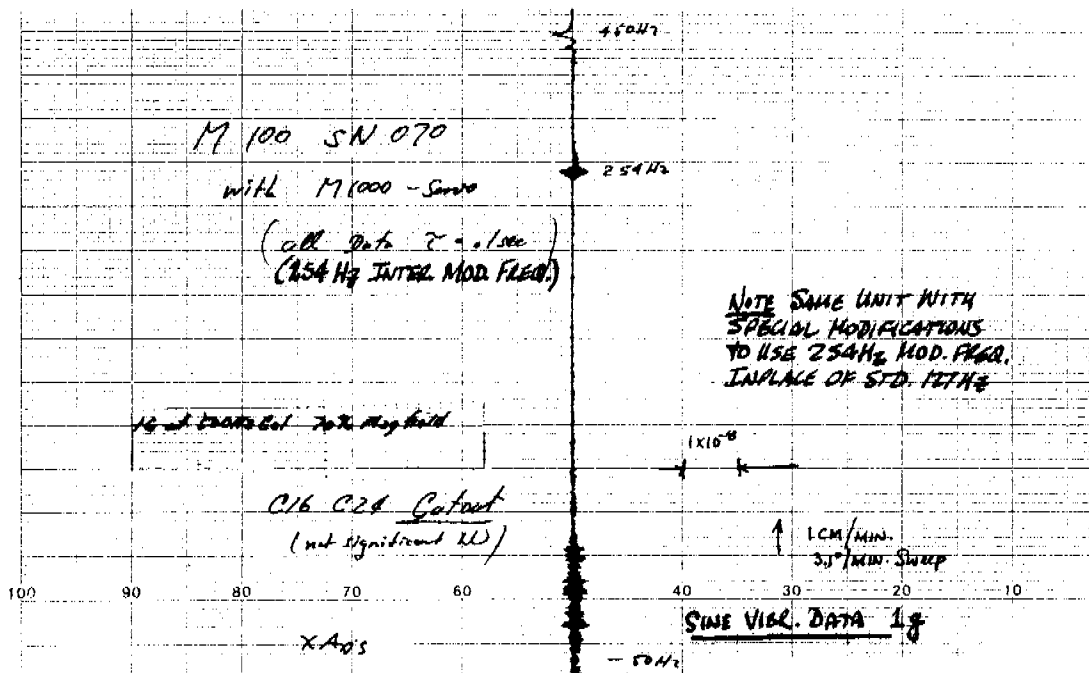 450Hz
M 100 SN 070
254Hz
with M1000 - Servo
(all Data τ = .1sec)
(254 Hz INTER MOD. FREQ.)
NOTE SAME UNIT WITH
SPECIAL MODIFICATIONS
TO USE 254Hz MOD. FREQ.
INPLACE OF STD. 127Hz
1X10⁻⁸
C16 C24
(not significant
1 CM/MIN.
/MIN. SWEEP
100 90 80 70 60 40 30 20 10
SINE VIBR. DATA 1g
- 50Hz